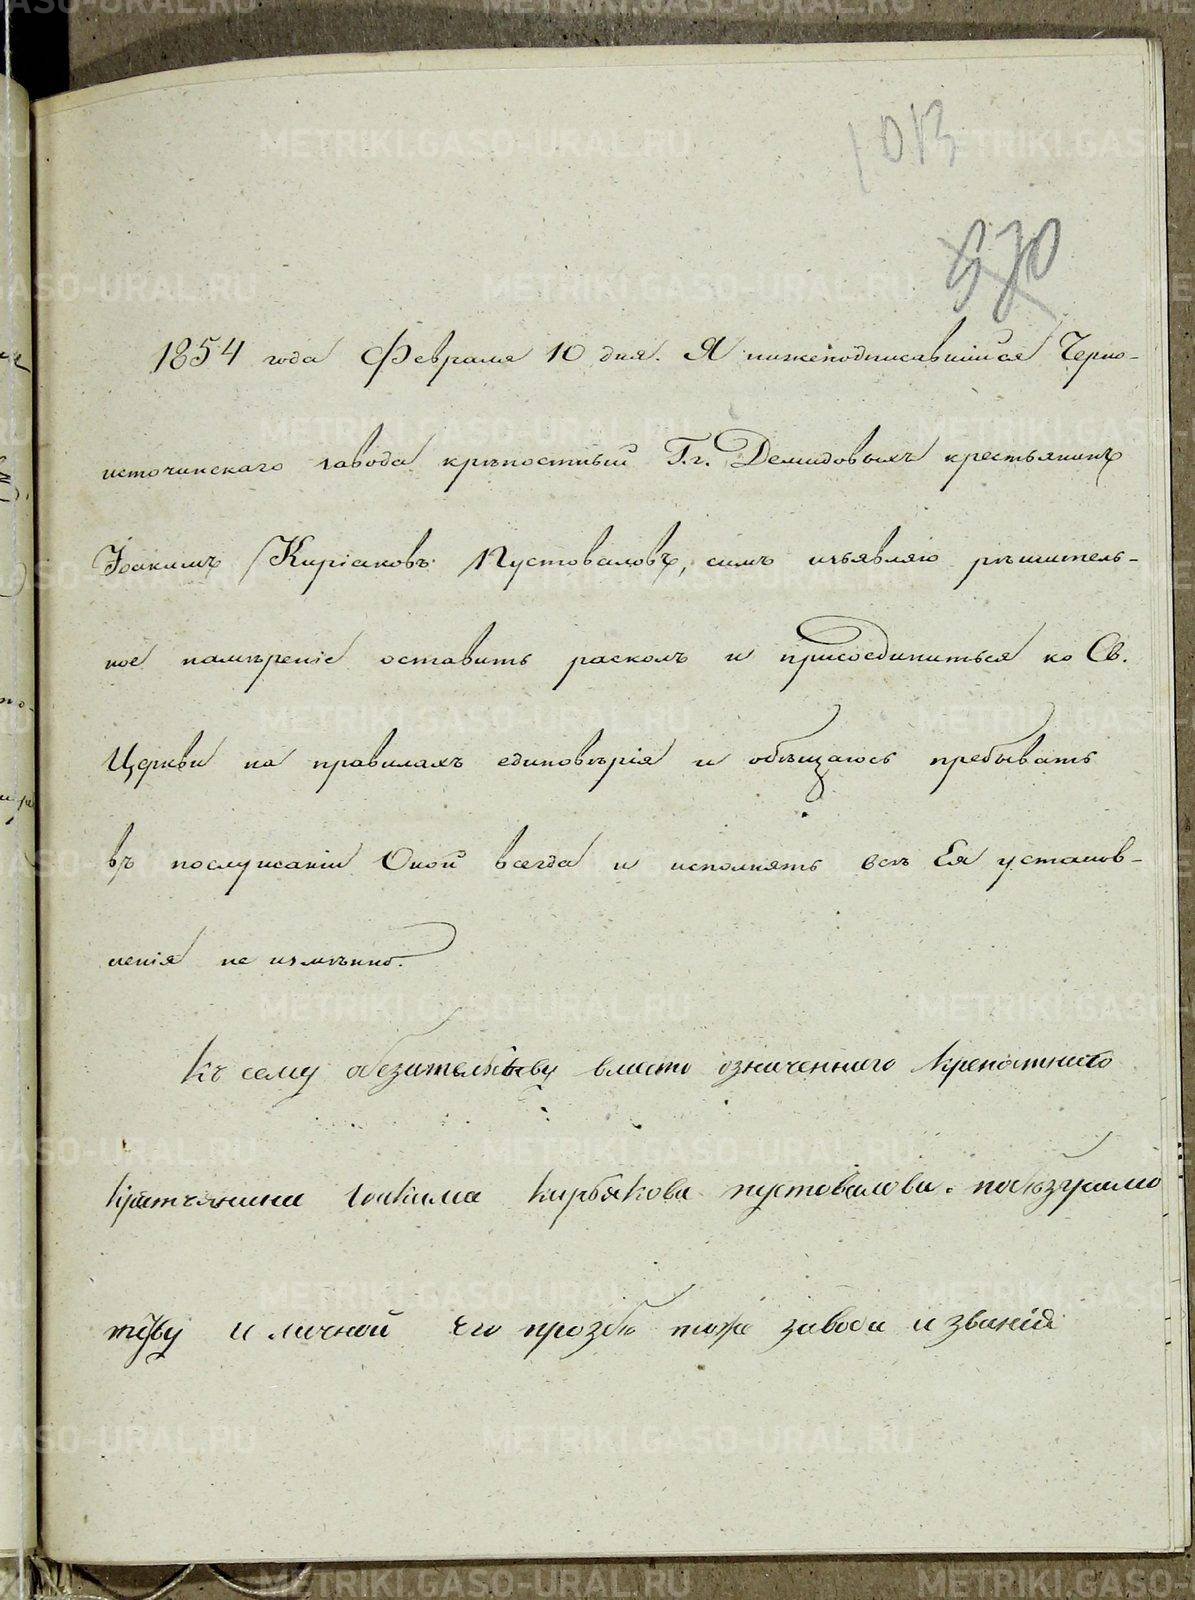 1013
570
1854 года Февраля 10 дня. Я нижеподписавшийся Черно-
источинскаго завода крѣпостный Г.г. Демидовыхъ крестьянинъ
Іоакимъ Киріаковъ Пустоваловъ, симъ изъявляю рѣшитель-
ное намѣреніе оставить расколъ и присоединиться ко Св.
Церкви на правилахъ единовѣрія и обѣщаюсь пребывать
въ послушаніи Оной всегда и исполнять всѣ Ея установ-
ленія не измѣнно.
Къ сему обезательству вместо означеннаго крепостнаго
крестъянина Іоакима кирьякова пустовалова.
и личной его прозбе тогоже завода и званія
METRIKI.GASO-URAL.RU